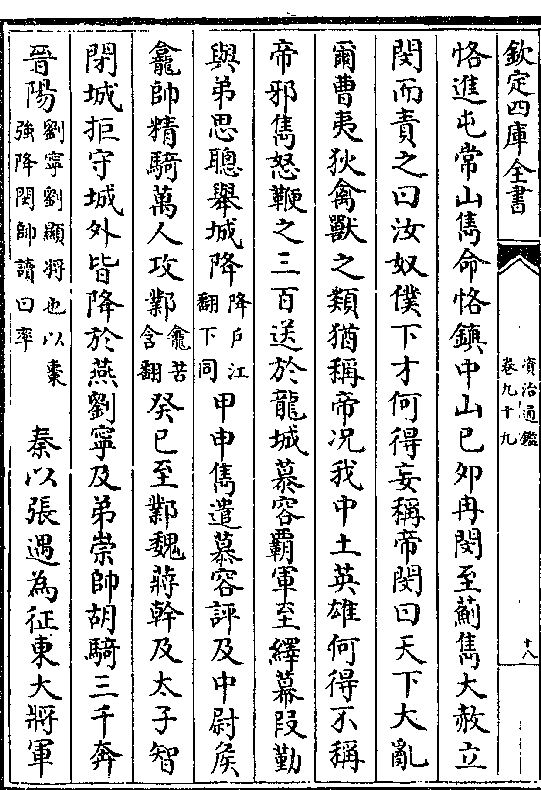 欽定四庫全書
資治通鑑
卷九十九
十八
恪進屯常山雋命恪鎮中山己卯冉閔至薊雋大赦立
閔而責之曰汝奴僕下才何得妄稱帝閔曰天下大亂
爾曹夷狄禽獸之類猶稱帝况我中土英雄何得不稱
帝邪雋怒鞭之三百送於龍城慕容霸軍至繹幕段勤
與弟思聰舉城降降户江翻下同甲申雋遣慕容評及中尉矦
龕帥精騎萬人攻鄴龕苦含翻癸巳至鄴魏蔣幹及太子智
閉城拒守城外皆降於燕劉寧及弟崇帥胡騎三千奔
晉陽劉寧劉顯將也以棗強降閔帥讀曰率 秦以張遇為征東大將軍